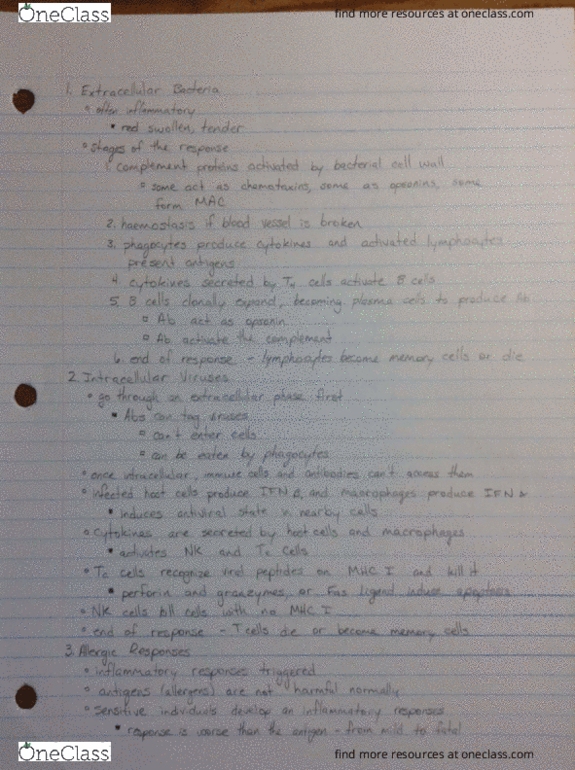 OneClass
find more resources at oneclass.com
1. Extracellular Bacteria
often inflammatory
red swollen, tender
stages of the response
1. complement proteins activated by bacterial cell wall
some act as chemotaxins, some as opsonins, some
form MAC
2. haemostasis if blood vessel is broken
3. phagocytes produce cytokines and activated lymphocytes
present antigens
4. cytokines secreted by TH cells activate B cells
5. B cells clonally expand, becoming plasma cells to produce Ab
Ab act as opsonin
Ab activate the complement
6. end of response - lymphocytes become memory cells or die
2. Intracellular Viruses
go through an extracellular phase first
Abs can tag viruses
can't enter cells
can be eaten by phagocytes
once intracellular, immune cells and antibodies can't access them
infected host cells produce IFN β, and macrophages produce IFN α
induces antiviral state in nearby cells
cytokines are secreted by host cells and macrophages
activates NK and Tc cells
Tc cells recognize viral peptides on MHC I and kill it
perforin and granzymes, or Fas Ligand induce apoptosis
NK cells kill cells with no MHC I
end of response - T cells die or become memory cells
3. Allergic Responses
inflammatory responses triggered
antigens (allergens) are not harmful normally
sensitive individuals develop an inflammatory responses
response is worse than the antigen - from mild to fatal
OneClass
find more resources at oneclass.com